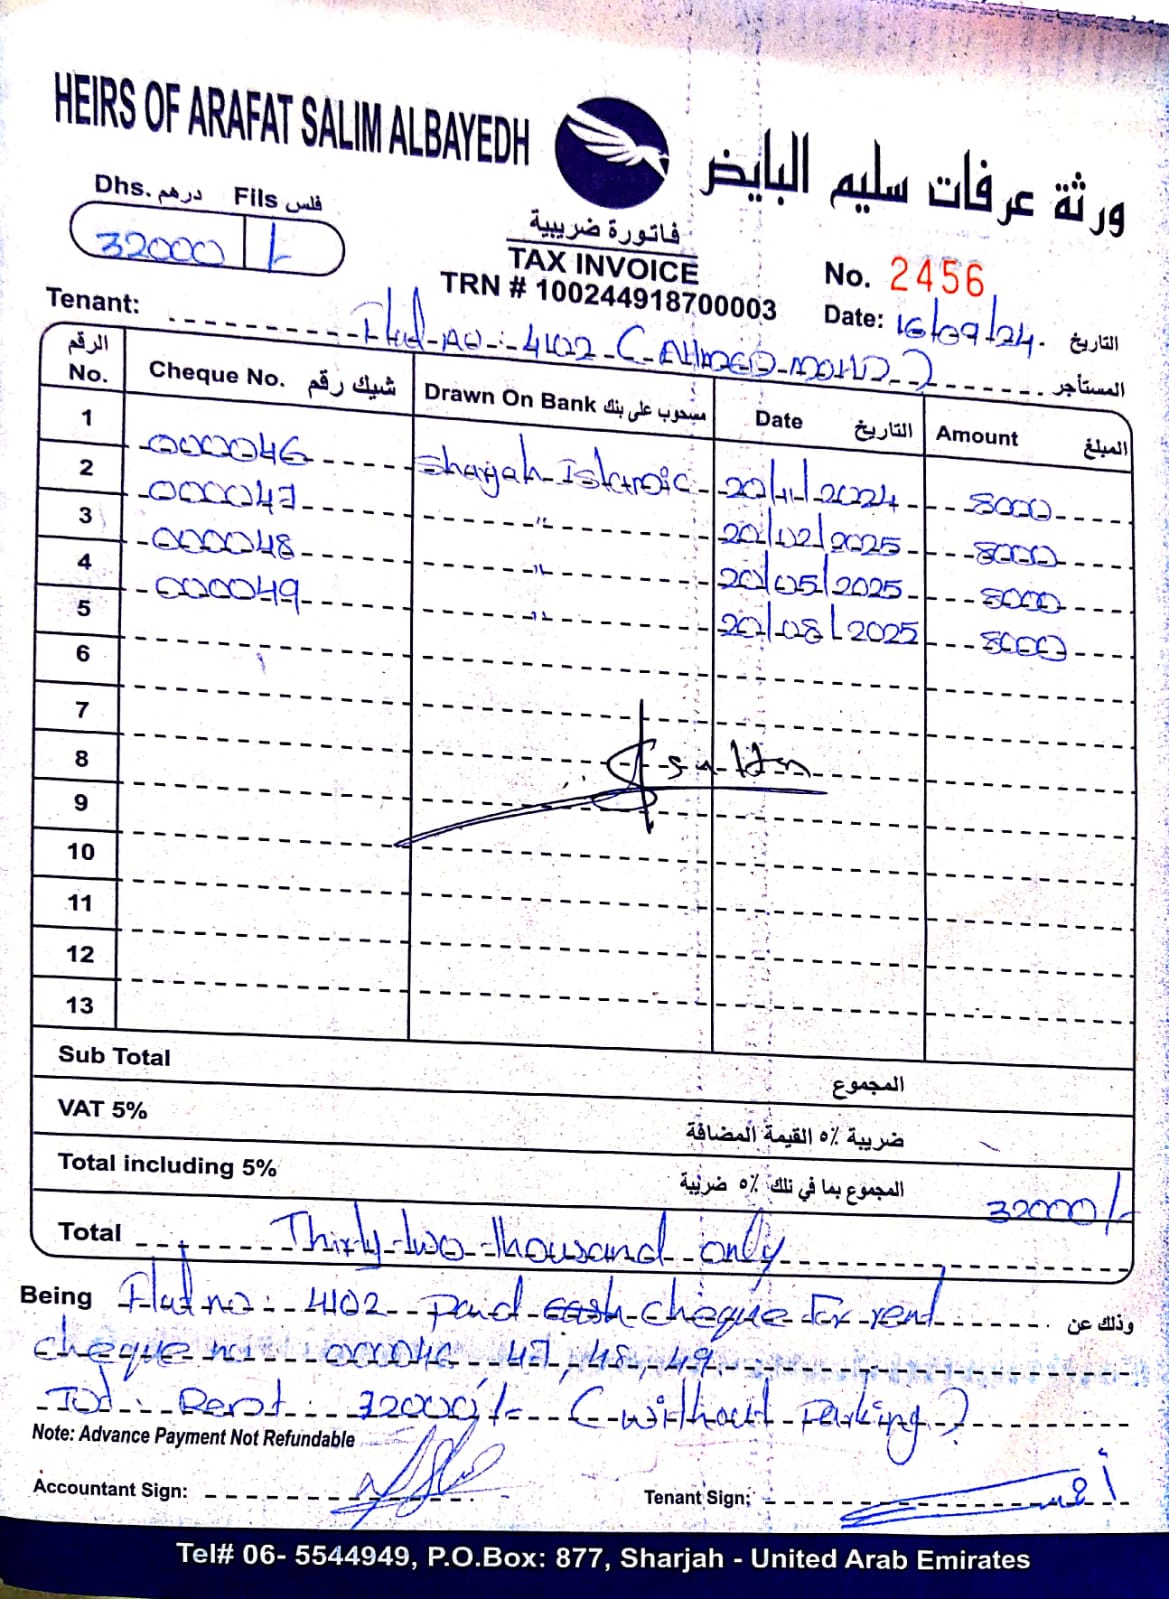 HEIRS OF ARAFAT SALIM ALBAYEDH
ورثة عرفات سليم البايض
Dhs. درهم Fils فلس
32000 /-
فاتورة ضريبية
TAX INVOICE
TRN # 100244918700003
No. 2456
Date: 16/09/24. التاريخ
Tenant: Flat no :- 4102 ( AHMED MOHD ) المستأجر
الرقم No. Cheque No. شيك رقم Drawn On Bank مسحوب على بنك Date التاريخ Amount المبلغ
1 000046 Sharjah Islamic 20/11/2024 8000
2 000047 " 20/02/2025 8000
3 000048 " 20/05/2025 8000
4 000049 " 20/08/2025 8000
5
6
7
8
9
10
11
12
13
Sub Total المجموع
VAT 5% ضريبة ٥٪ القيمة المضافة
Total including 5% المجموع بما في ذلك ٥٪ ضريبة 32000/-
Total Thirty two thousand only
Being Flat no : 4102 paid cash cheque for rent وذلك عن
cheque no: 000046, 47, 48, 49.
Tot : Rent : 32000/- ( without parking )
Note: Advance Payment Not Refundable
Accountant Sign:
Tenant Sign:
Tel# 06- 5544949, P.O.Box: 877, Sharjah - United Arab Emirates